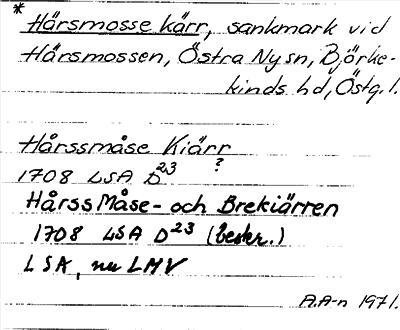 * Hårsmosse kärr, sankmark vid
Hårsmossen, Östra Ny sn, Björke-
kinds hd, Östg. l.
Hårssmåse Kiärr
?
1708 LSA D23
Hårss Måse- och Brekiärren
1708 LSA D23 (beskr.)
LSA, nu LMV
A.A-n 1971.